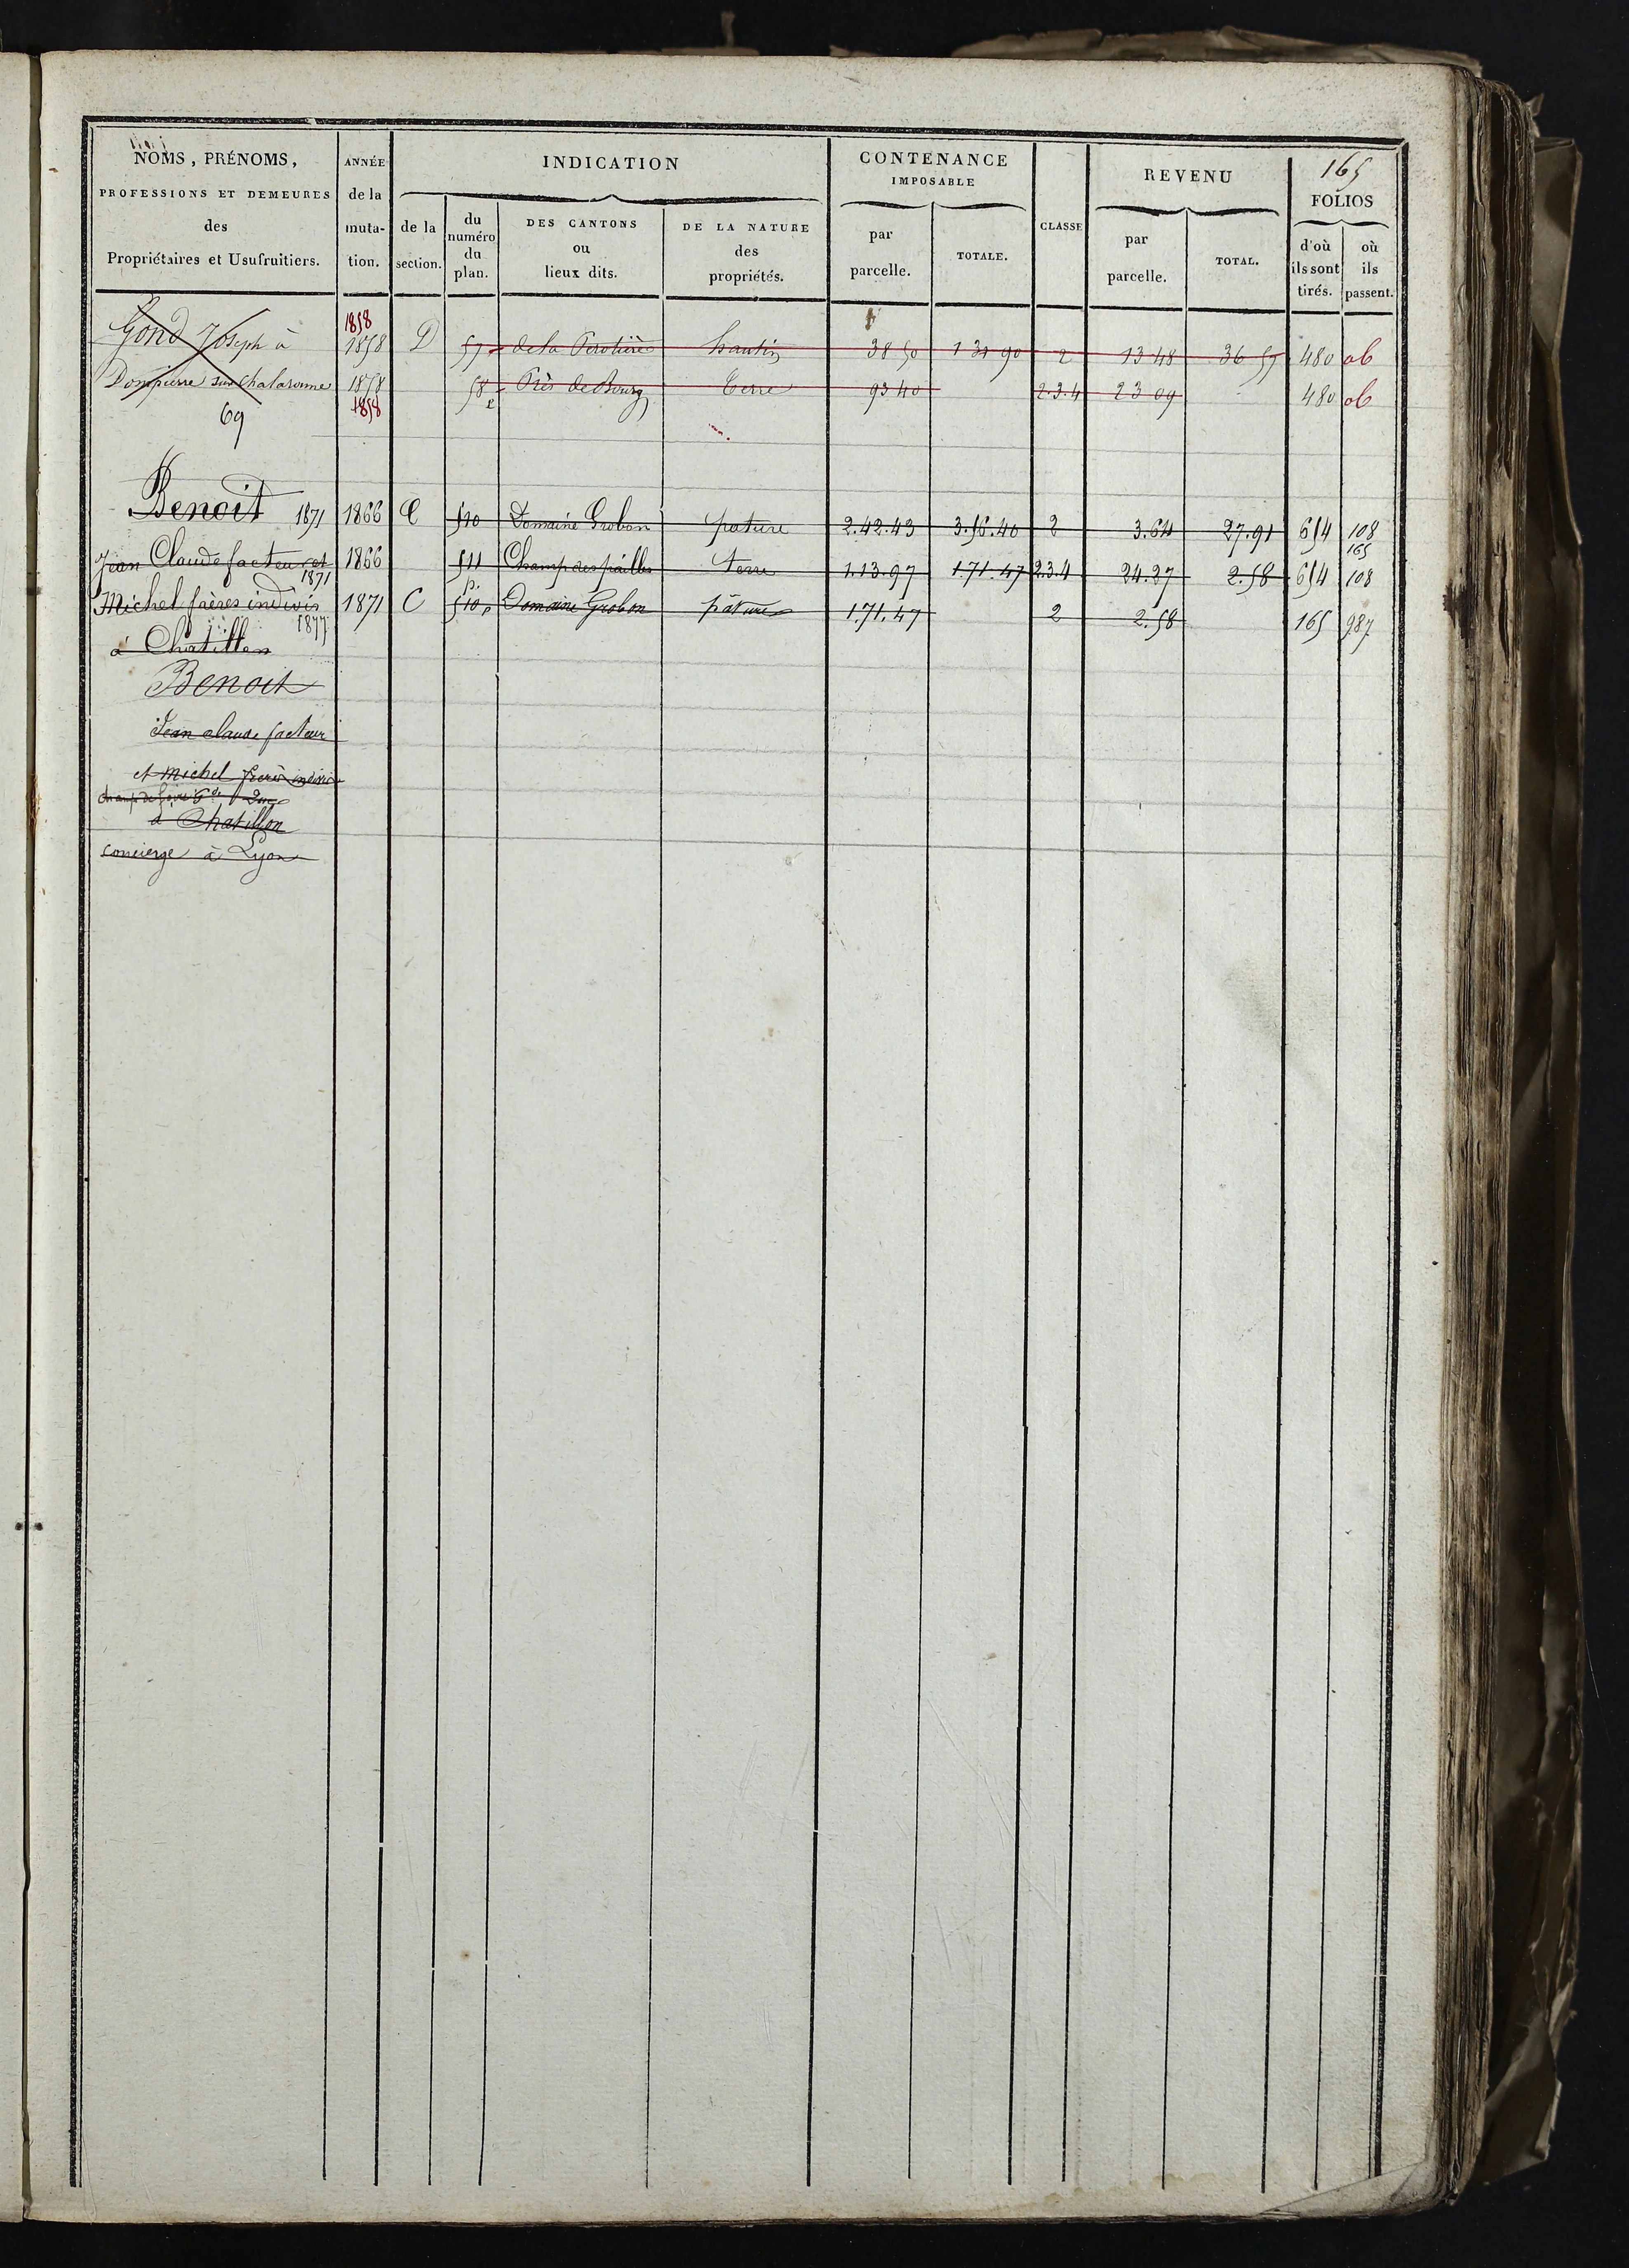 165
NOMS, PRÉNOMS,
PROFESSIONS ET DEMEURES
des
Propriétaires et Usufruitiers.
ANNÉE
de la
muta-
tion.
INDICATION
de la
section.
du
numéro
du
plan.
DES CANTONS
ou
lieux dits.
DE LA NATURE
des
propriétés.
CONTENANCE
IMPOSABLE
par
parcelle.
TOTALE.
CLASSE
REVENU
par
parcelle.
TOTAL.
FOLIOS
d'où
ils sont
tirés.
où
ils
passent.
1858
Gond Joseph à 1858 D 57 de la hautin 38 50 1 31 90 2 13 48 36 57 480 ob
Dompierre sur Chalaronne 1858 58 Près de Bourg Terre 93 40 2.3.4 23 09 480 ob
1858
69
Benoit 1871 1866 C 510 Domaine Grobon pature 2.42.43 3.56.40 2 3.64 27.91 654 108
165
Jean Claude facteur et 1866 511 Champ des pailles terre 1.13.97 1.71.47 2.3.4 24.27 2.58 654 108
1871
Michel frères indivis 1871 C 510 p. Domaine Grobon pâture 1.71.47 2 2.58 165 987
1877
à Chatillon
Benoit
Jean claude facteur
et Michel frères indivis
champ de foire
à Chatillon
concierge à Lyon